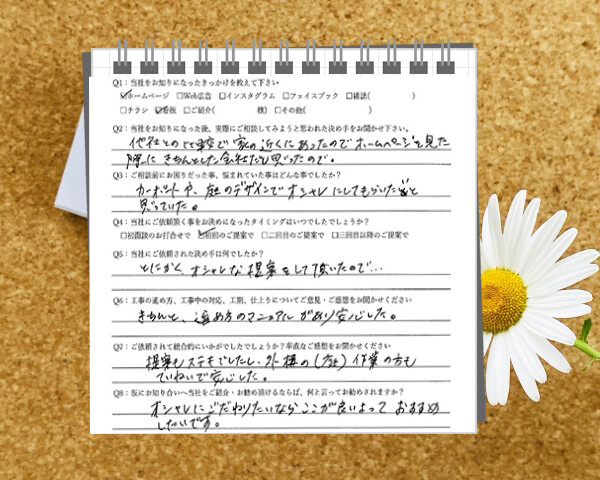 Q1：当社をお知りになったきっかけを教えて下さい
☑ホームページ □Web広告 □インスタグラム □フェイスブック □雑誌( )
□チラシ ☑看板 □ご紹介( 様) □その他( )
Q2：当社をお知りになった後、実際にご相談してみようと思われた決め手をお聞かせ下さい。
他社との比較で家の近くにあったのでホームページを見た
際に きちんとした会社だと思ったので。
Q3：ご相談前にお困りだった事、悩まれていた事はどんな事でしたか？
カーポートや、庭のデザインでオシャレにしてもらいたいと
思っていた。
Q4：当社にご依頼頂く事をお決めになったタイミングはいつでしたでしょうか？
□初面談のお打合せで ☑初回のご提案で □二回目のご提案で □三回目以降のご提案で
Q5：当社に依頼された決め手は何でしたか？
とにかく オシャレな提案をして頂いたので…
Q6：工事の進め方、工事中の対応、工期、仕上りについてご意見・ご感想をお聞かせください
きちんと、進め方のマニュアルがあり安心した。
Q7：ご依頼されて総合的にいかがでしたでしょうか？率直なご感想をお聞かせください
提案もステキでしたし、外構の(方も)作業の方も
ていねいで安心した。
Q8：仮にお知り合いへ当社をご紹介・お勧め頂けるならば、何と言ってお勧めされますか？
オシャレにこだわりたいならここが良いよって おすすめ
したいです。